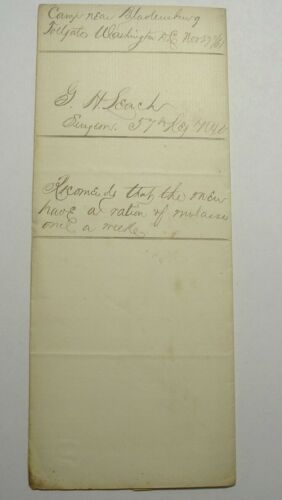 Camp near Bladensburg
Tollgate Washington D.C. Nov 27/61
G. H. Leach
Surgeon. 57th Reg NYV
Recomends that the men
have a ration of molasses
once a week,